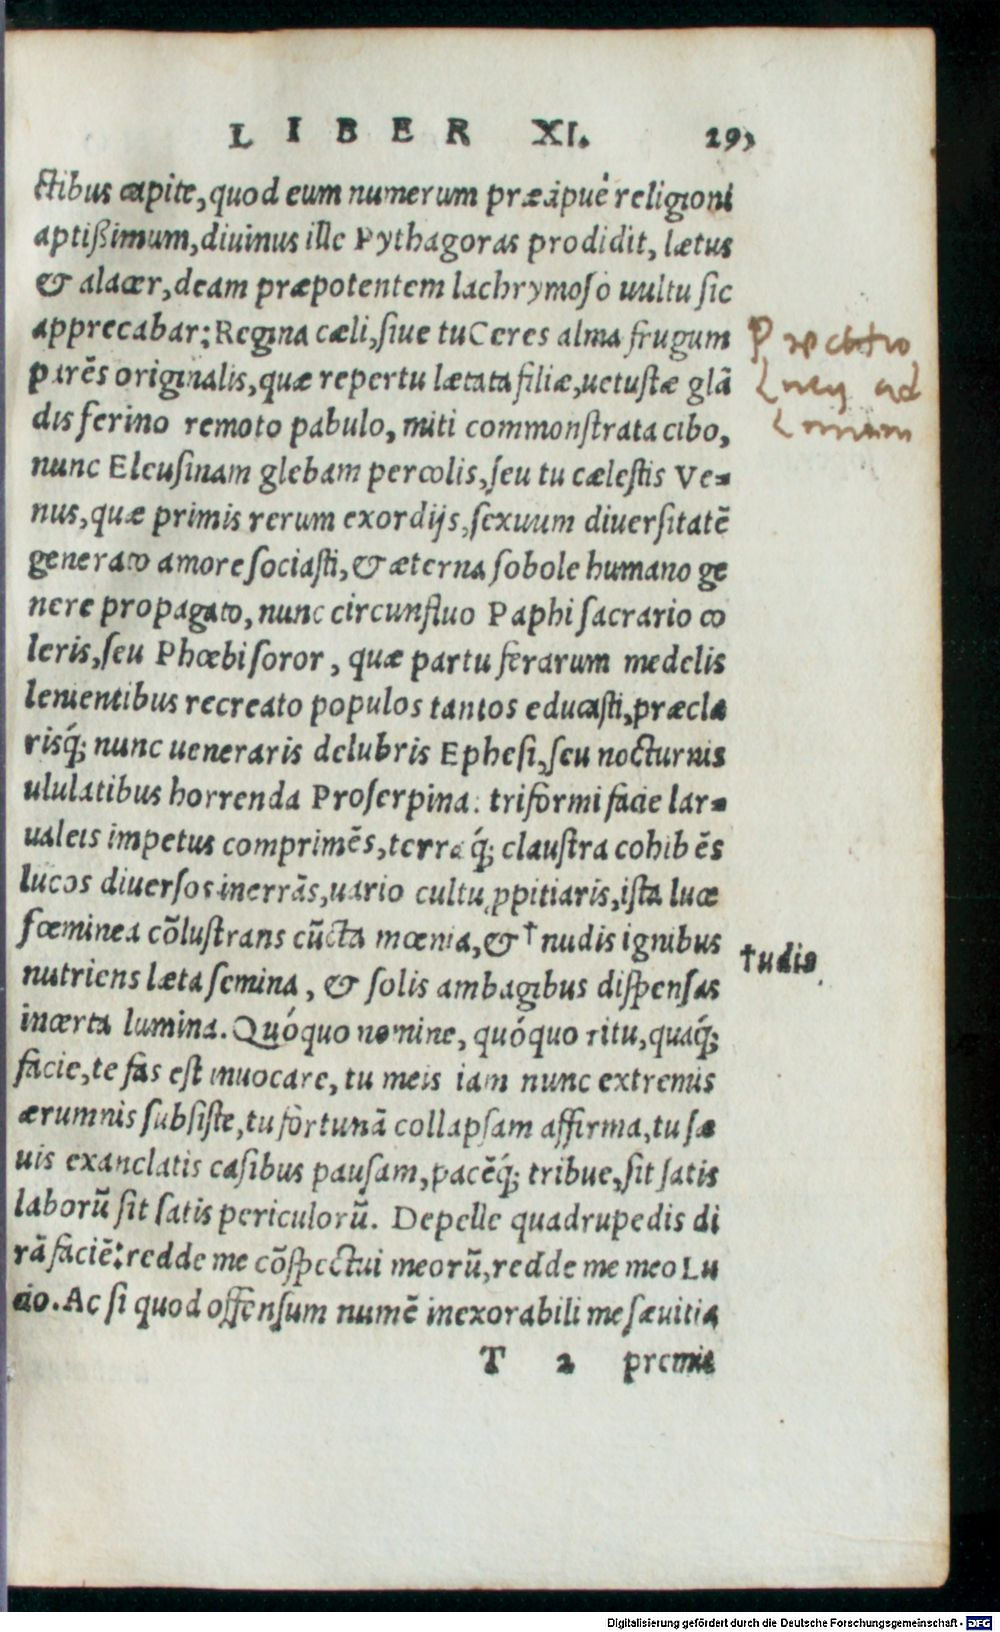 LIBER XI. 29
ctibus capite, quod eum numerum præcipuè religioni
aptißimum, diuinus ille Pythagoras prodidit, lætus
& alacer, deam præpotentem lachrymoso uultu sic
apprecabar: Regina cæli, siue tu Ceres alma frugum
parẽs originalis, quæ repertu lætata filiæ, uetustæ glã
dis ferino remoto pabulo, miti commonstrata cibo,
nunc Eleusinam glebam percolis, seu tu cælestis Ve-
nus, quæ primis rerum exordijs, sexuum diuersitatẽ
generato amore sociasti, & æterna sobole humano ge
nere propagato, nunc circunfluo Paphi sacrario co
leris, seu Phœbi soror, quæ partu ferarum medelis
lenientibus recreato populos tantos educasti, præcla
risq́; nunc ueneraris delubris Ephesi, seu nocturnis
ululatibus horrenda Proserpina: triformi facie lar-
ualeis impetus comprimẽs, terræq́; claustra cohibẽs
lucos diuersos inerrãs, uario cultu ꝓpitiaris, ista luce
fœminea cõlustrans cũcta mœnia, & † nudis ignibus
nutriens læta semina, & solis ambagibus dispensas
incerta lumina. Quóquo nomine, quóquo ritu, quaq́;
facie, te fas est inuocare, tu meis iam nunc extremis
ærumnis subsiste, tu fortunã collapsam affirma, tu sæ
uis exanclatis casibus pausam, pacẽq́; tribue, sit satis
laborũ sit satis periculorũ. Depelle quadrupedis di
rã faciẽ: redde me cõspectui meorũ, redde me meo Lu
cio. Ac si quod offensum numẽ inexorabili me sæuitia
T 2 premit
ad
†udis
Digitalisierung gefördert durch die Deutsche Forschungsgemeinschaft - DFG